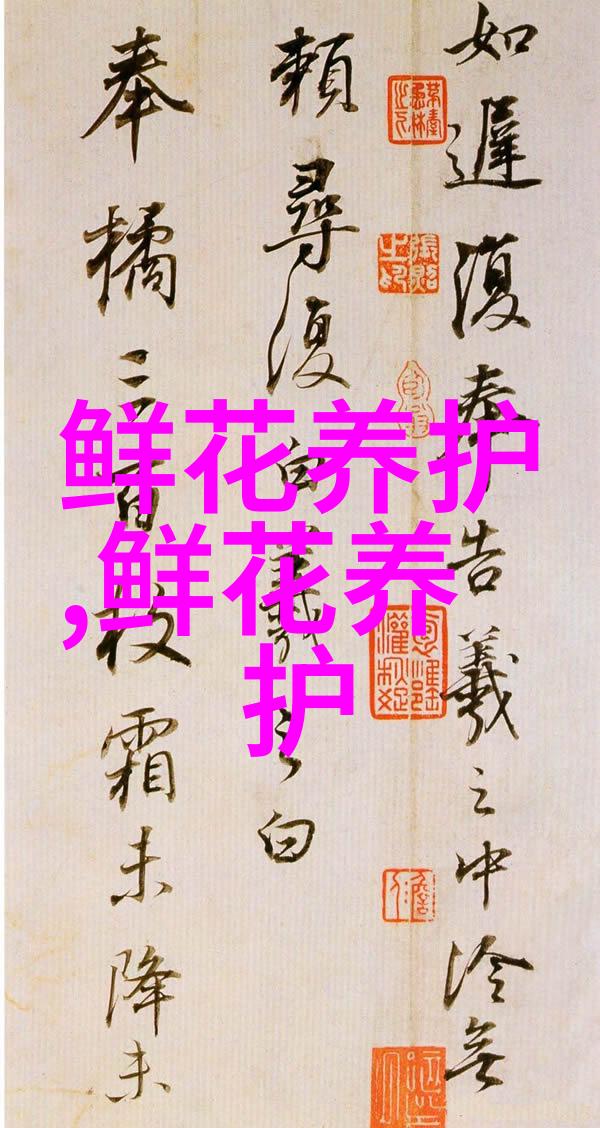 如遲復奉告羲之中冷無
賴尋復白羲之白
奉橘三百枚霜未降未
鲜花养护
,鲜花养
护